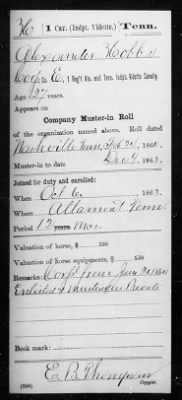 H | 1 Cav. (Indpt. Vidette.) | Tenn.
Alexander Hobbs
Corp., Co. E, 1 Reg't Mtd. and Tenn. Indpt. Vidette Cavalry
Age 27 years.
Appears on
Company Muster-in Roll
of the organization named above. Roll dated
Nashville Tenn, Feb 24, 1864.
Muster-in to date Dec 9, 1863.
Joined for duty and enrolled:
When Oct 6, 1863.
Where Altamont Tenn
Period 1 years Mos.
Valuation of horse, $ 100
Valuation of horse equipments, $ 100
Remarks: Corp'l from Jan 1864
Enlisted & Mustered as Private
Book mark:
E. B. Thompson
(358) Copyist.